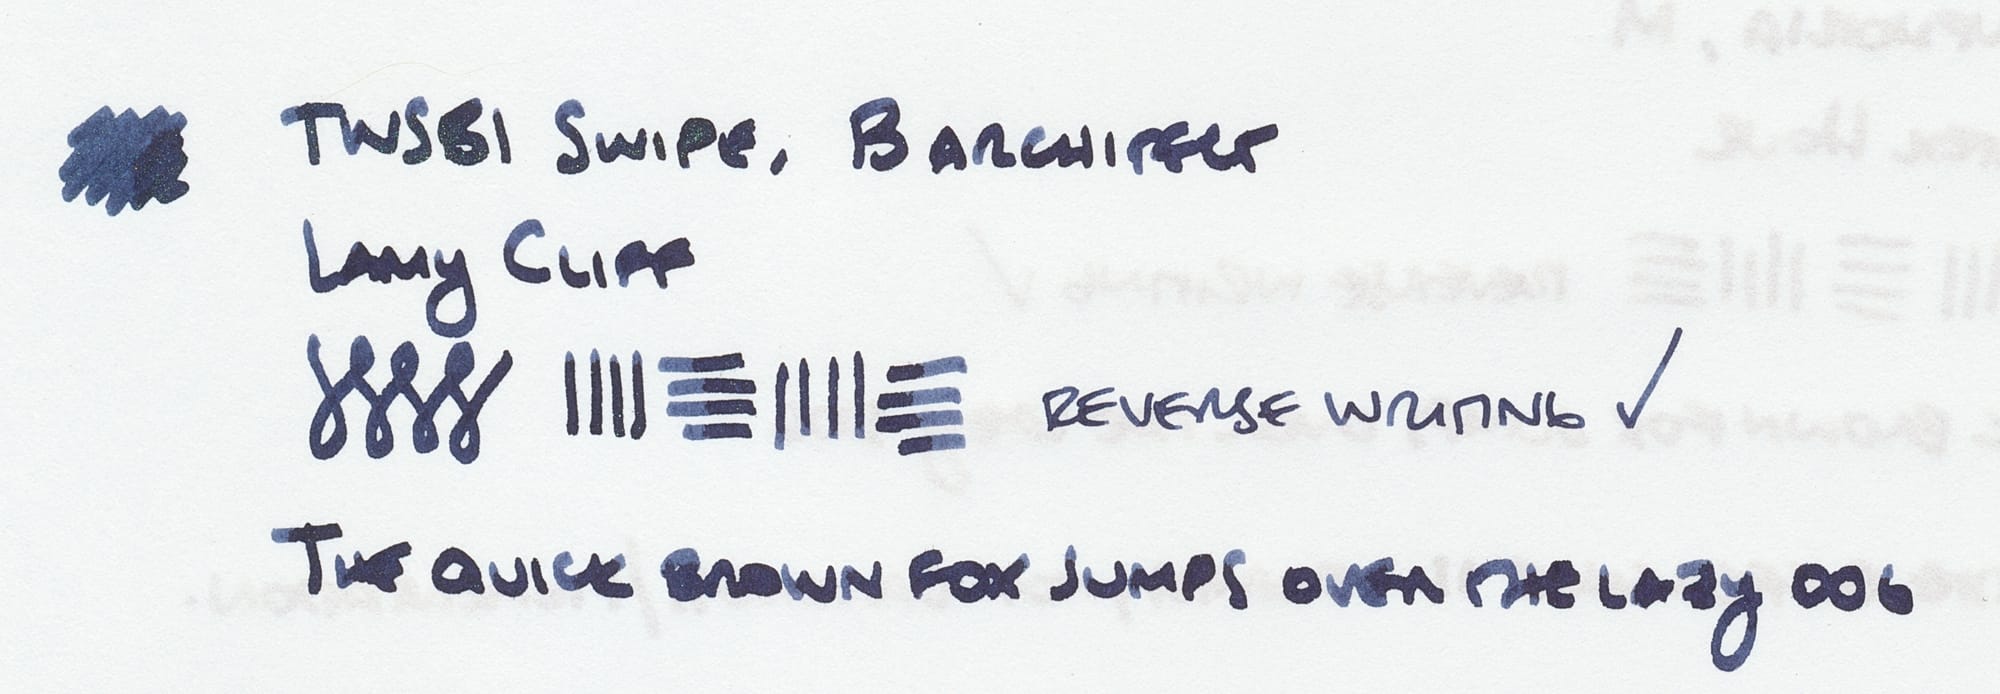 TWSBI SWIPE, BARCHITECT
LAMY CLIFF
REVERSE WRITING ✓
THE QUICK BROWN FOX JUMPS OVER THE LAZY DOG